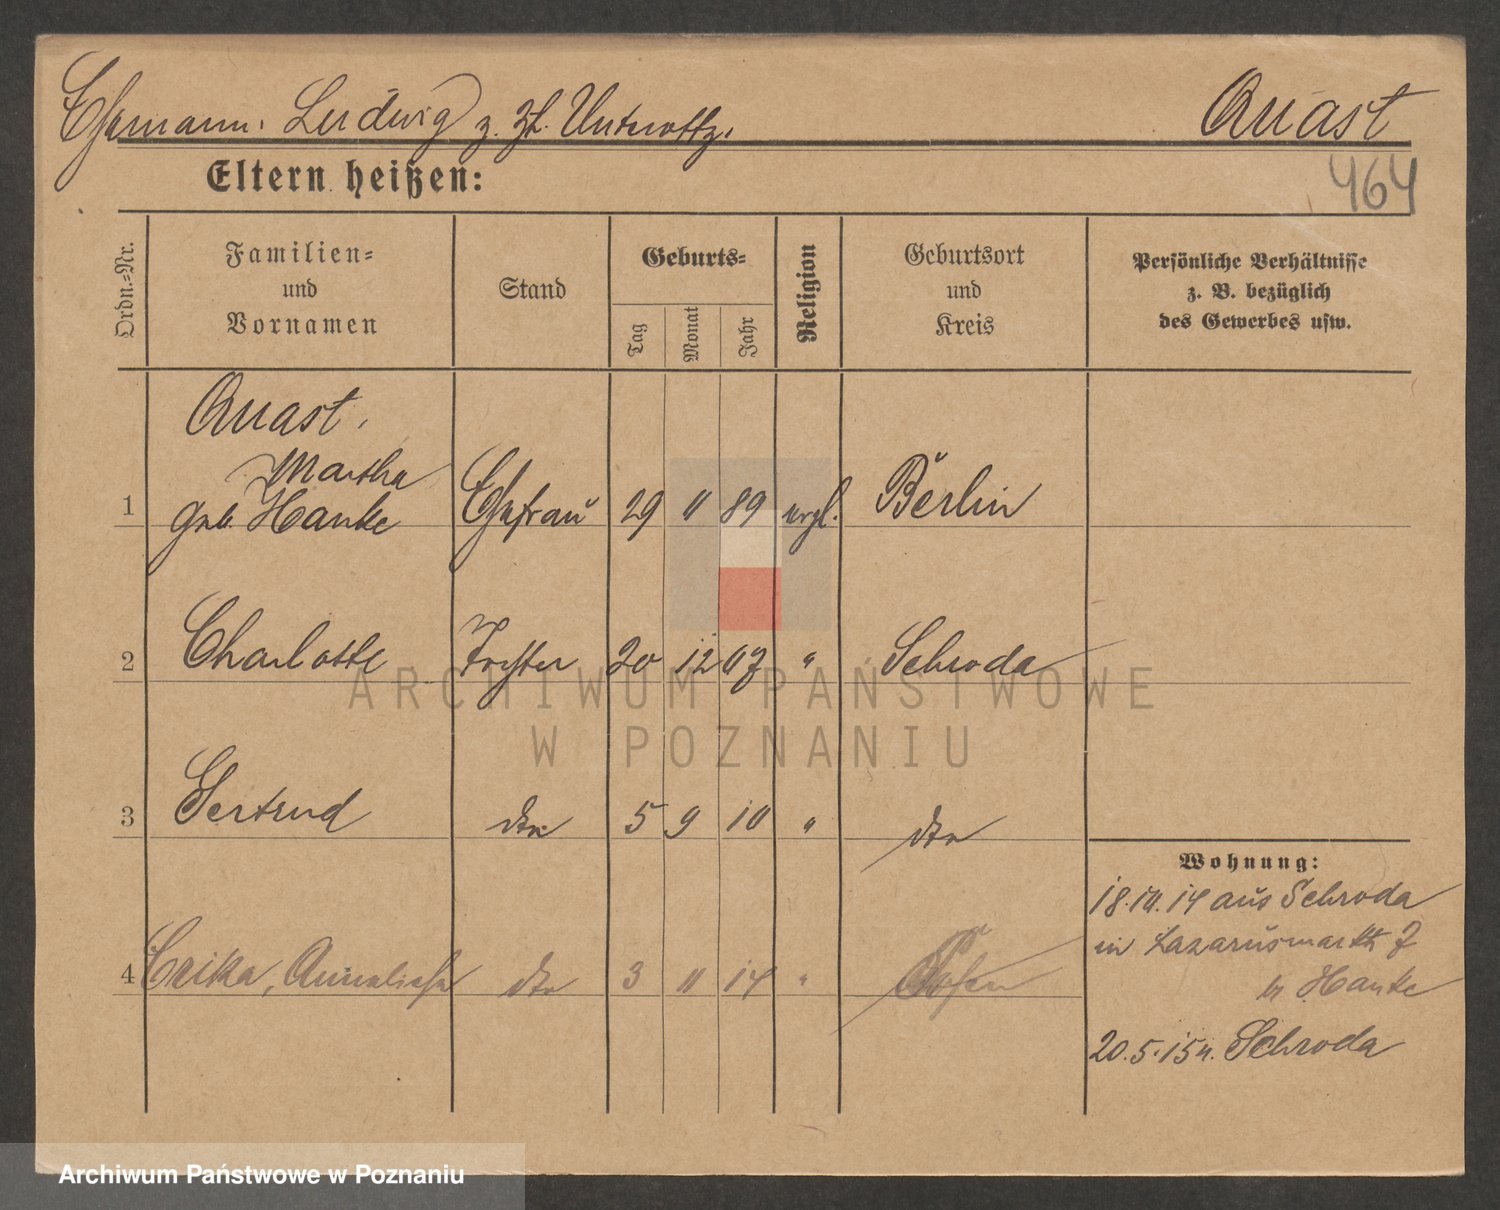 Ehemann: Ludwig z. Zt. Unteroffz.
Quast
Eltern heißen:
464
Ordn.=Nr.
Familien=
und
Vornamen
Stand
Geburts=
Tag
Monat
Jahr
Religion
Geburtsort
und
Kreis
Persönliche Verhältnisse
z. B. bezüglich
des Gewerbes usw.
Quast,
Martha
1 geb. Hanke Ehefrau 29 11 89 evgl. Berlin
2 Charlotte Tochter 20 12 07 " Schroda
3 Gertrud dto 5 9 10 " dto
Wohnung:
18.10.14 aus Schroda
in Lazarusmarkt 7
b/ Hanke
4 Erika, Anneliese dto 3 11 14 " Posen
20.5.15 n. Schroda
ARCHIWUM PAŃSTWOWE
W POZNANIU
Archiwum Państwowe w Poznaniu